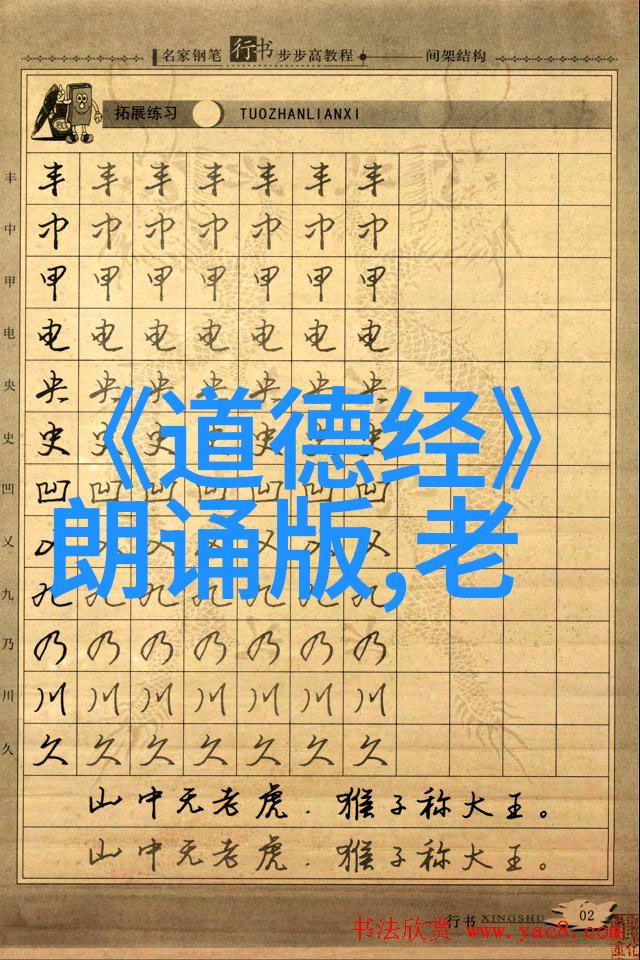 名家钢笔行书步步高教程 间架结构
拓展练习 TUOZHANLIANXI
丰 丰 丰 丰 丰 丰 丰 丰
中 中 中 中 中 中 中 中
甲 甲 甲 甲 甲 甲 甲 甲
电 电 电 电 电 电 电 电
央 央 央 央 央 央 央 央
《道德经》
史 史 史 史 史 史 史 史
凹 凹 凹 凹 凹 凹 凹 凹
朗诵版,老
乂 乂 乂 乂 乂 乂 乂 乂
九 九 九 九 九 九 九 九
乃 乃 乃 乃 乃 乃 乃 乃
川 川 川 川 川 川 川 川
久 久 久 久 久 久 久 久
山中无老虎.猴子称大王。
山中无老虎.猴子称大王。
行书 XINGSHU 02
书法欣赏 www.yac8.com